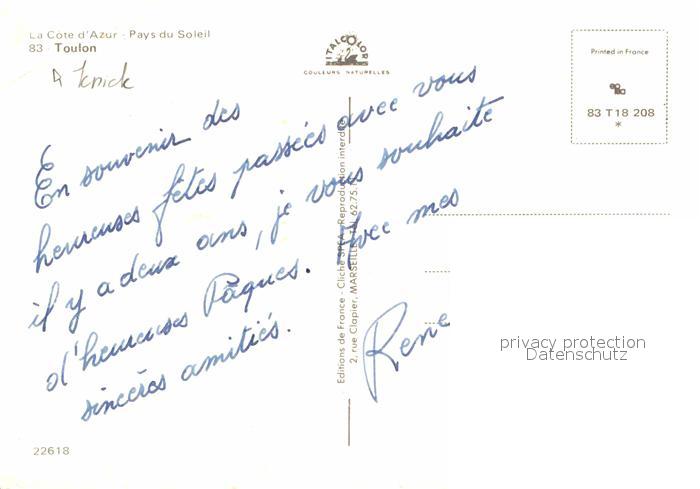 La Côte d'Azur - Pays du Soleil
83 - Toulon
ITALCOLOR
COULEURS NATURELLES
Printed in France
83 T18 208
*
En souvenir des
heureuses fêtes passées avec vous
il y a deux ans, je vous souhaite
d'heureuses Pâques. Avec mes
sincères amitiés.
René
Editions de France - Cliché SPEA - Reproduction interdite
2, rue Clapier, MARSEILLE - Tél. 62.75.
privacy protection
Datenschutz
22618